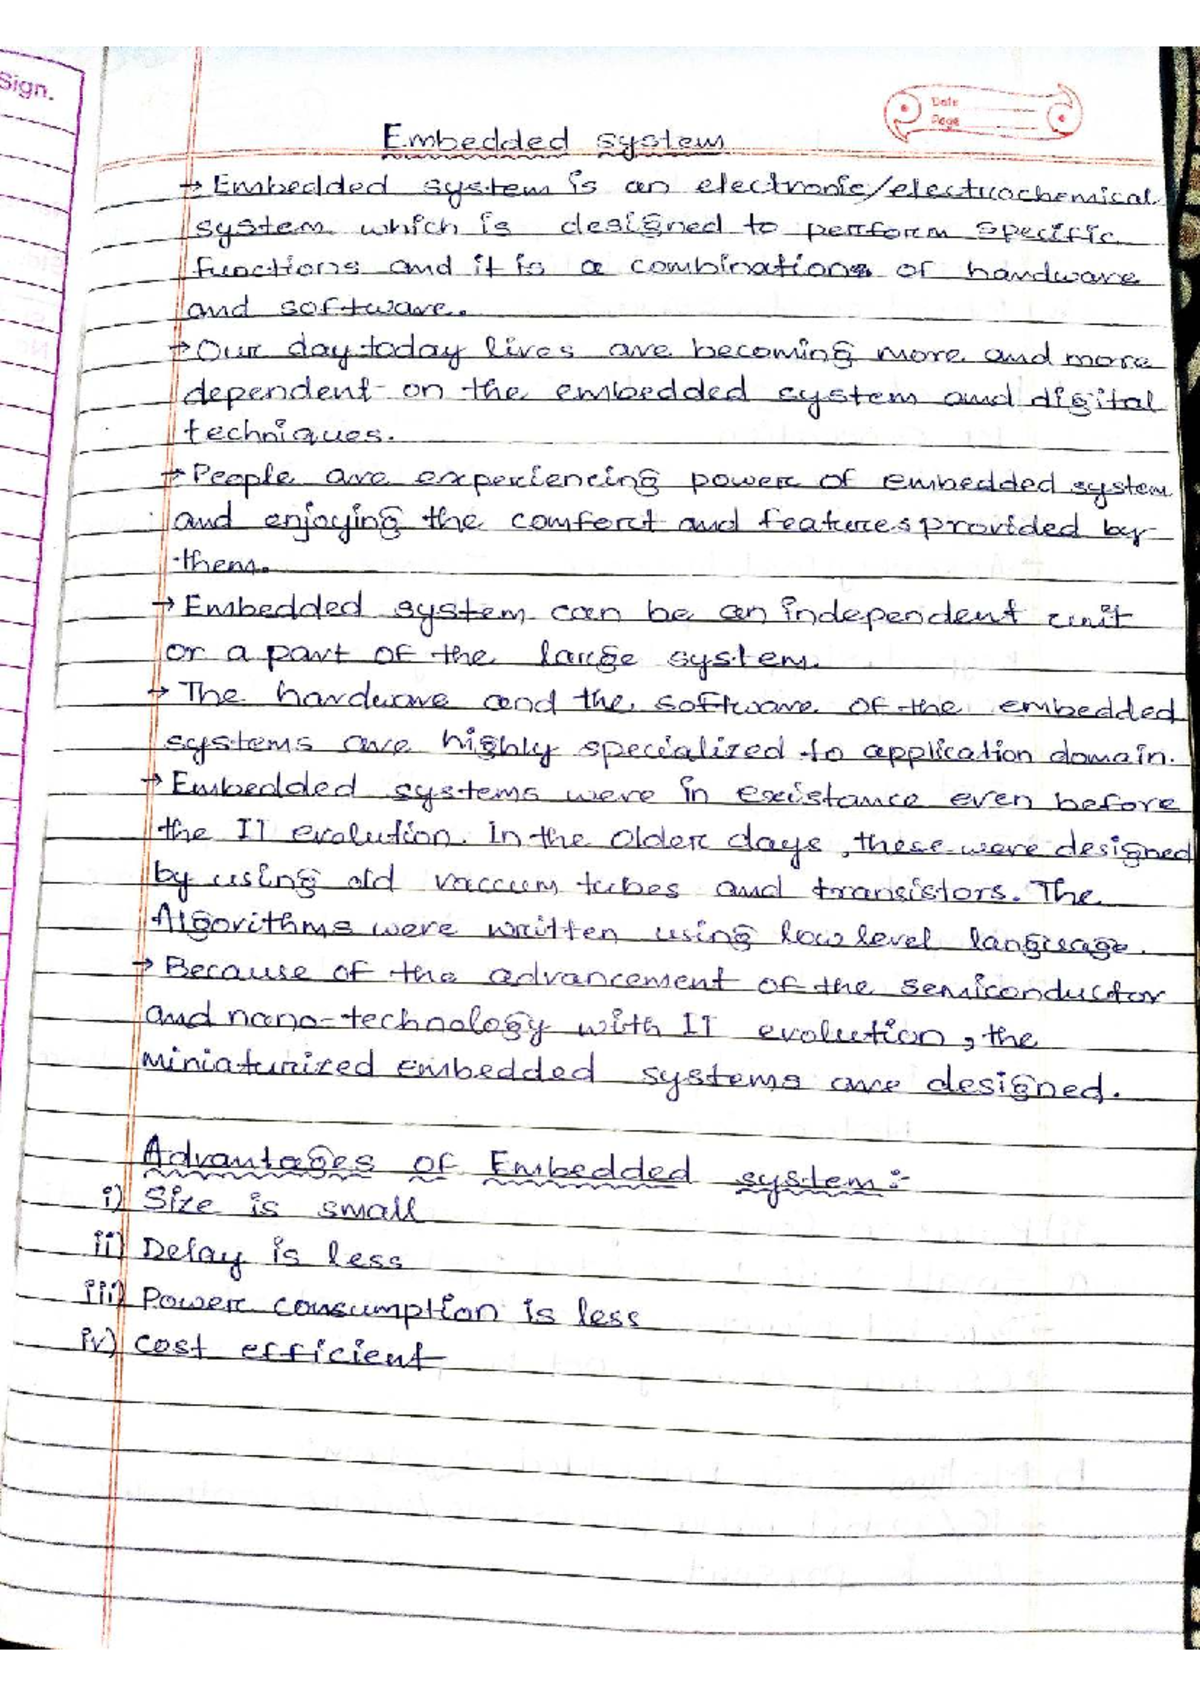 Sign.
Date
Page
Embedded system
→ Embedded system is an electronic/electrochemical
system which is designed to perform specific
functions and it is a combinations of hardware
and software.
→ Our day today lives are becoming more and more
dependent on the embedded system and digital
techniques.
→ People are experiencing power of embedded system
and enjoying the comfort and features provided by
them.
→ Embedded system can be an independent unit
or a part of the large system.
→ The hardware and the software of the embedded
systems are highly specialized to application domain.
→ Embedded systems were in existance even before
the IT evolution. In the older days, these were designed
by using old vaccum tubes and transistors. The
Algorithms were written using low level language.
→ Because of the advancement of the semiconductor
and nano-technology with IT evolution, the
miniaturized embedded systems are designed.
Advantages of Embedded system :-
i) Size is small
ii) Delay is less
iii) Power consumption is less
iv) cost efficient